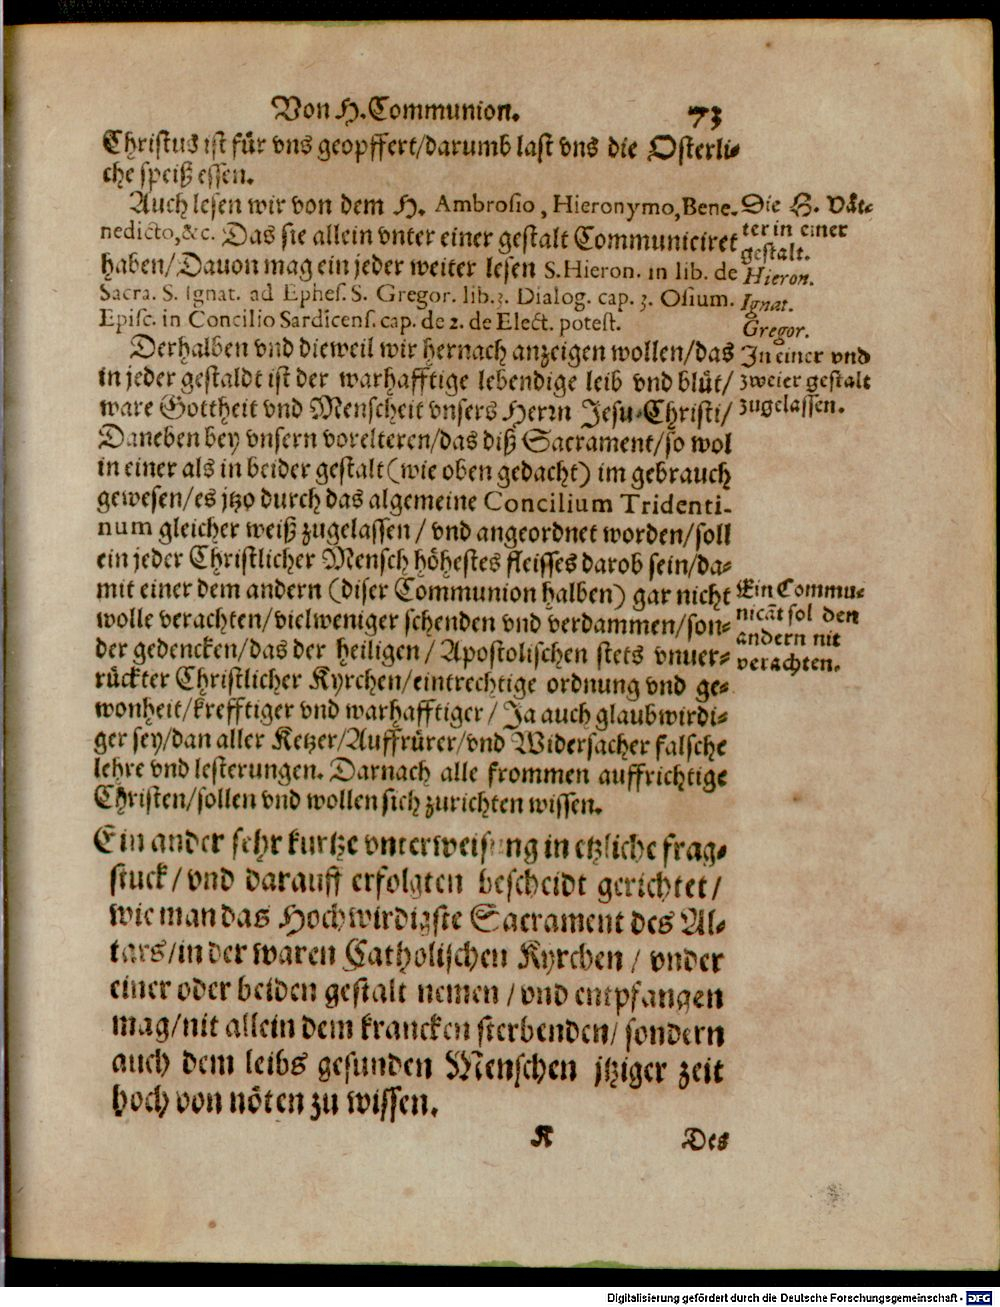 Von H. Communion. 73
Christus ist für vns geopffert/darumb last vns die Osterli-
che speiß essen.
Auch lesen wir von dem H. Ambrosio, Hieronymo, Bene-
nedicto, &c. Das sie allein vnter einer gestalt Communiciret
haben/Dauon mag ein jeder weiter lesen S. Hieron. in lib. de
Sacra. S. Ignat. ad Ephes. S. Gregor. lib. 3. Dialog. cap. 3. Osium.
Episc. in Concilio Sardicens. cap. de 2. de Elect. potest.
Die H. Våt-
ter in einer
gestalt.
Hieron.
Ignat.
Gregor.
Derhalben vnd dieweil wir hernach anzeigen wollen/das
in jeder gestaldt ist der warhafftige lebendige leib vnd blůt/
ware Gottheit vnd Menscheit vnsers Herrn Jesu Christi/
Daneben bey vnsern vorelteren/das diß Sacrament/so wol
in einer als in beider gestalt (wie oben gedacht) im gebrauch
gewesen/es jtzo durch das algemeine Concilium Tridenti-
num gleicher weiß zugelassen / vnd angeordnet worden/soll
ein jeder Christlicher Mensch höhestes fleisses darob sein/da-
mit einer dem andern (diser Communion halben) gar nicht
wolle verachten/vielweniger schenden vnd verdammen/son-
der gedencken/das der heiligen / Apostolischen stets vnuer-
rückter Christlicher Kyrchen/eintrechtige ordnung vnd ge-
wonheit/krefftiger vnd warhafftiger / Ja auch glaubwirdi-
ger sey/dan aller Ketzer/Auffrürer/vnd Widersacher falsche
lehre vnd lesterungen. Darnach alle frommen auffrichtige
Christen/sollen vnd wollen sich zurichten wissen.
In einer vnd
zweier gestalt
zugelassen.
Ein Commu-
nicāt sol den
andern nit
verachten.
Ein ander sehr kurtze vnterweisung in etzliche frag-
stuck / vnd darauff erfolgten bescheidt gerichtet /
wie man das Hochwirdigste Sacrament des Al-
tars/in der waren Catholischen Kyrchen / vnder
einer oder beiden gestalt nemen / vnd entpfangen
mag/nit allein dem krancken sterbenden/ sondern
auch dem leibs gesunden Menschen jtziger zeit
hoch von nöten zu wissen.
K Des
Digitalisierung gefördert durch die Deutsche Forschungsgemeinschaft - DFG